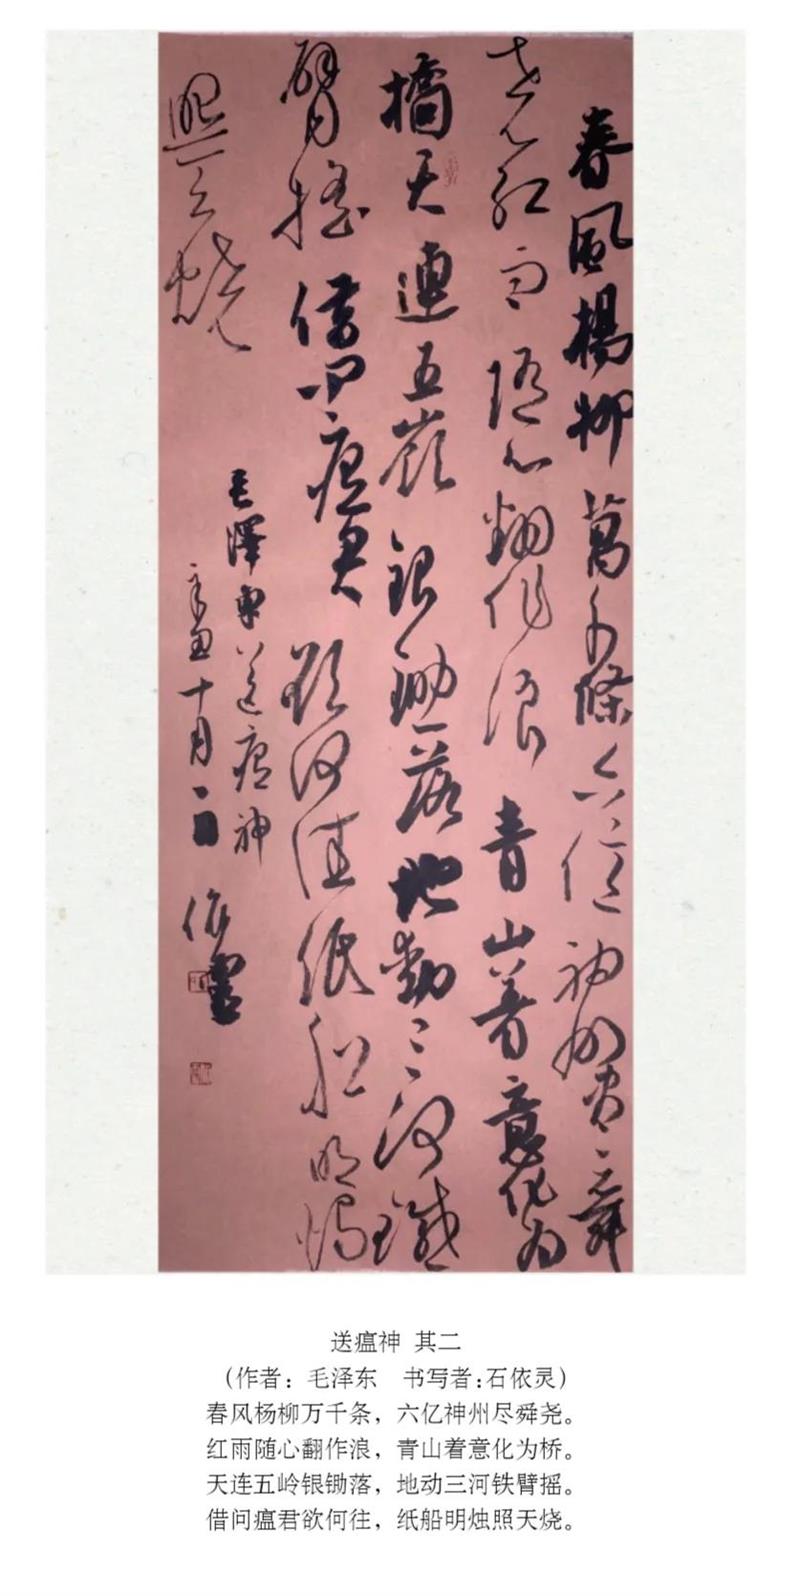 春風楊柳萬千條六億神州盡舜
堯紅雨隨心翻作浪青山著意化為
橋天連五嶺銀鋤落地動三河鐵
臂搖借問瘟君欲何往紙船明燭
照天燒
毛澤東送瘟神
辛丑十月一日依靈
送瘟神 其二
(作者：毛泽东 书写者:石依灵)
春风杨柳万千条，六亿神州尽舜尧。
红雨随心翻作浪，青山着意化为桥。
天连五岭银锄落，地动三河铁臂摇。
借问瘟君欲何往，纸船明烛照天烧。